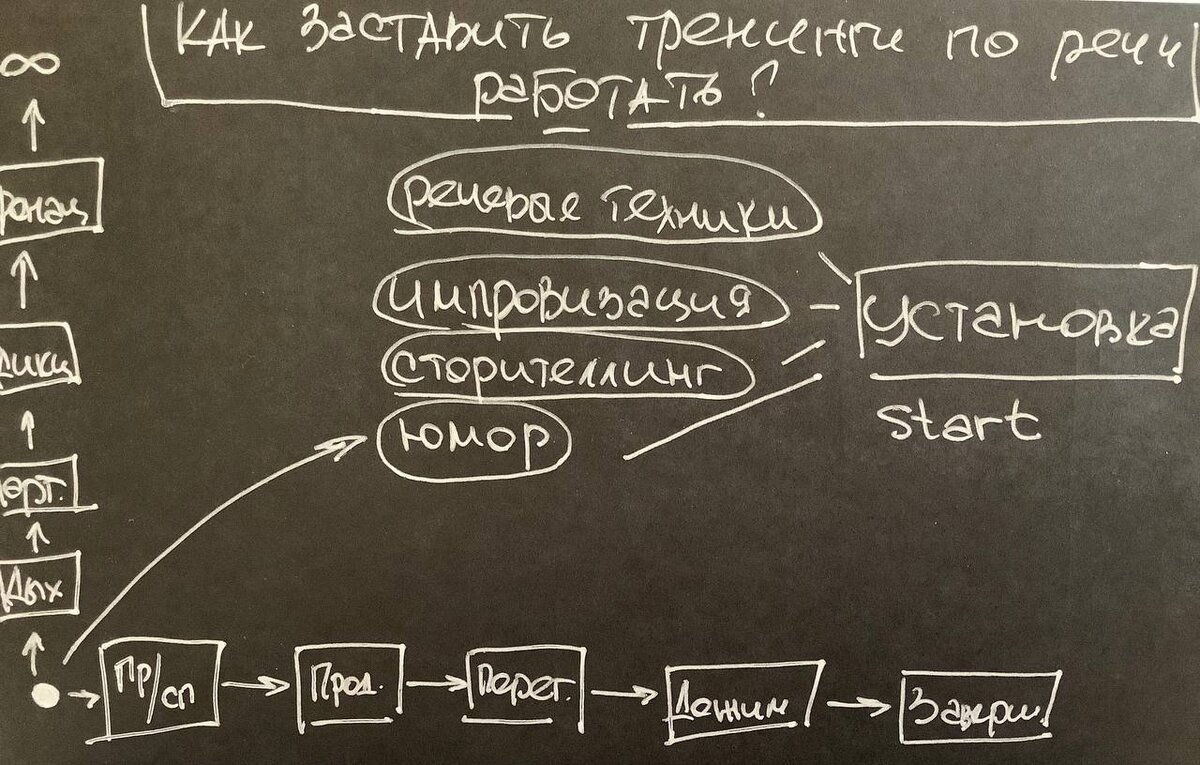 Как заставить тренинги по речи
работать?
∞
фонац
речевые техники
импровизация
установка
дикц
сторителлинг
start
юмор
арт.
Дых
Пр/сп
Прод.
Перег.
Дожим
Заверш.